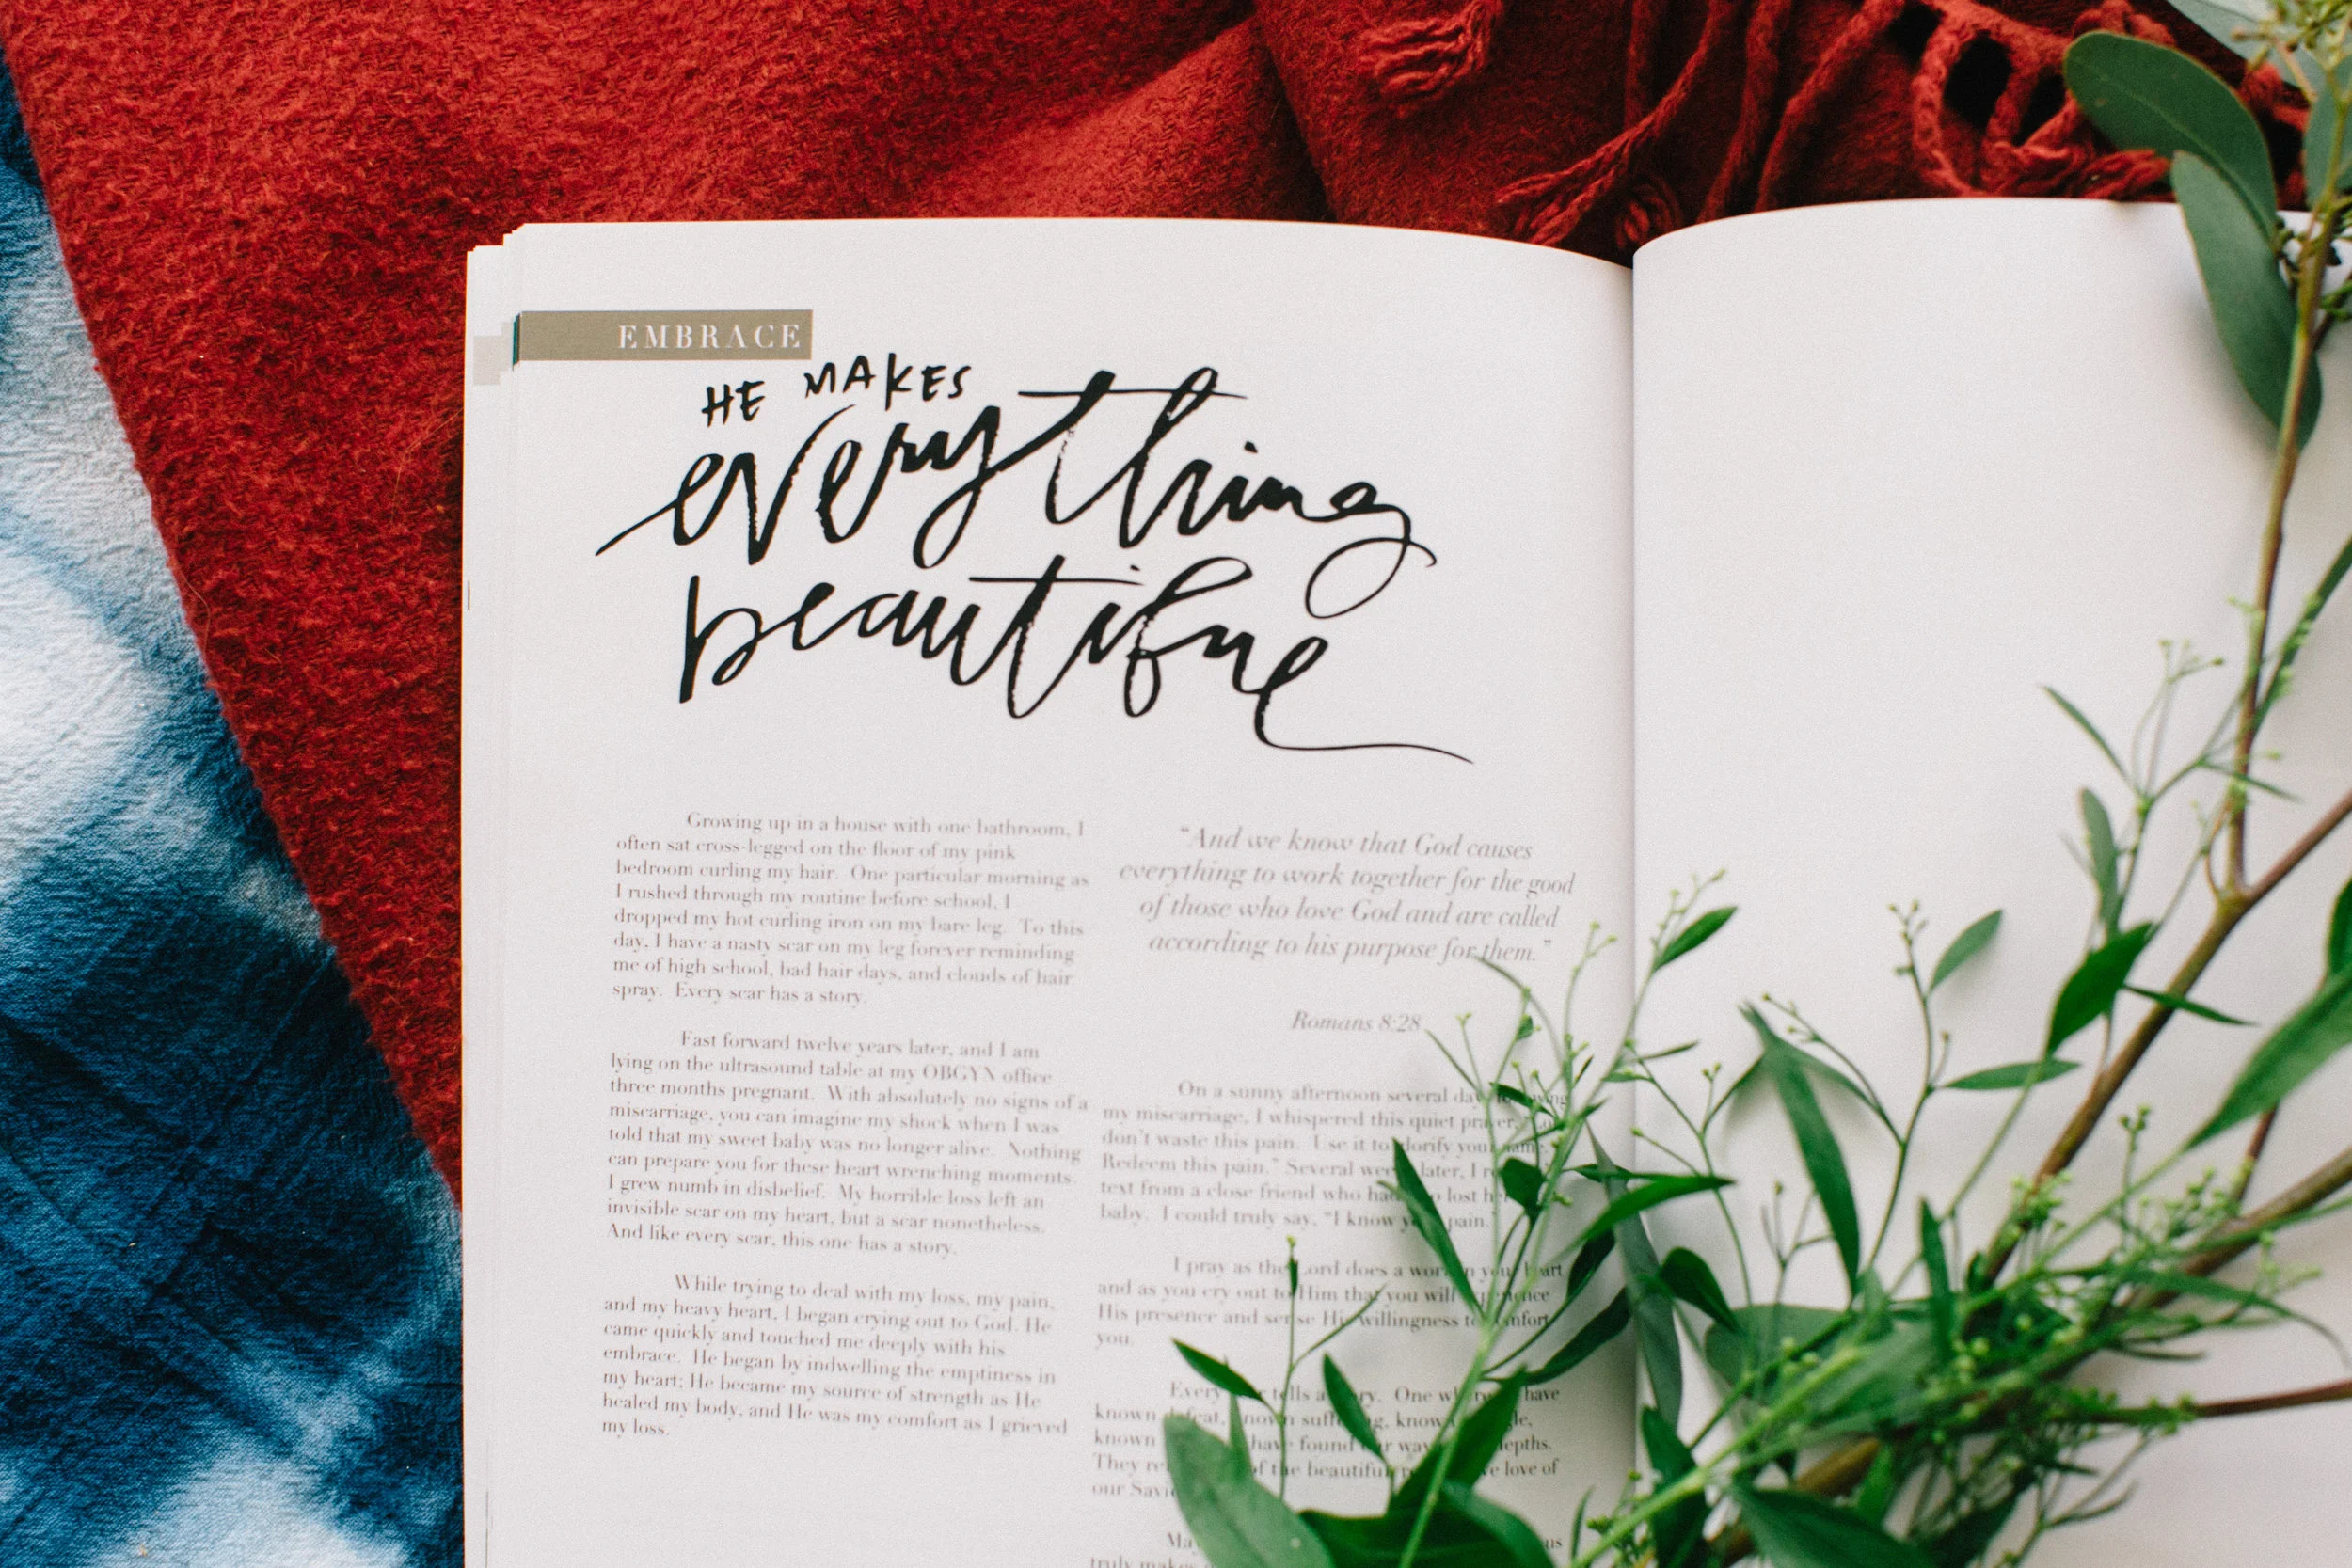 EMBRACE
HE MAKES
everything
beautiful
Growing up in a house with one bathroom, I
often sat cross-legged on the floor of my pink
bedroom curling my hair. One particular morning as
I rushed through my routine before school, I
dropped my hot curling iron on my bare leg. To this
day, I have a nasty scar on my leg forever reminding
me of high school, bad hair days, and clouds of hair
spray. Every scar has a story.
Fast forward twelve years later, and I am
lying on the ultrasound table at my OBGYN office
three months pregnant. With absolutely no signs of a
miscarriage, you can imagine my shock when I was
told that my sweet baby was no longer alive. Nothing
can prepare you for these heart wrenching moments.
I grew numb in disbelief. My horrible loss left an
invisible scar on my heart, but a scar nonetheless.
And like every scar, this one has a story.
While trying to deal with my loss, my pain,
and my heavy heart, I began crying out to God. He
came quickly and touched me deeply with his
embrace. He began by indwelling the emptiness in
my heart; He became my source of strength as He
healed my body, and He was my comfort as I grieved
my loss.
"And we know that God causes
everything to work together for the good
of those who love God and are called
according to his purpose for them."
Romans 8:28
On a sunny afternoon several
my miscarriage, I whispered this quiet prayer,
don't waste this pain. Use it to glorify your name.
Redeem this pain." Several weeks later, I
text from a close friend who had lost
baby. I could truly say, "I know your pain."
I pray as the Lord does a work in your heart
and as you cry out to Him that you will experience
His presence and sense His willingness to comfort
you.
Every tells a story. One have
known defeat, known suffering, known
known have found our way depths.
They of the beautiful love of
our
truly makes